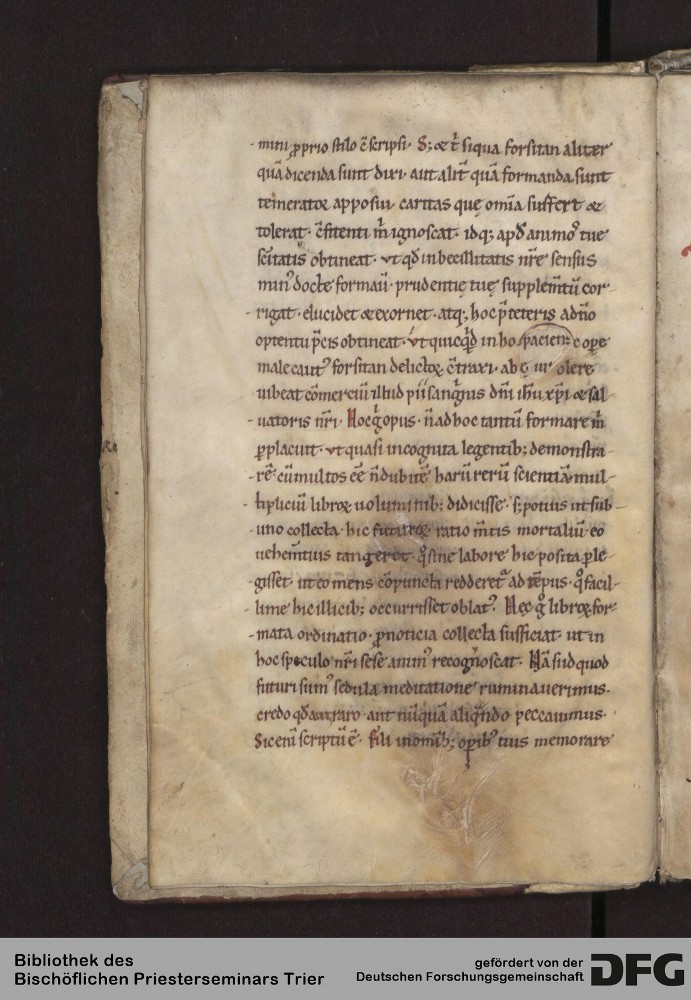 mini ꝓprio stilo c̄scripsi· S; & t̄ siqua forsitan aliter
quā dicenda sunt dixi· aut alit̄ quā formanda sunt
temeratoꝝ apposui· caritas quę om̄ia suffert &
tolerat· c̄fitenti m̄ ignoscat· idq; apđ animoꝰ tuę
sc̄itatis obtineat· ut qđ inbecillitatis nr̄e sensus
minꝰ docte formauı̄· prudentię tuę supplem̄tū cor-
rigat· elucidet & exornet· atq; hoc p̄ceteris ad dn̄o
optentu p̄cis obtineat· ut quicqđ in ho
male cautꝰ forsitan delictoꝝ c̄traxi· olere
iubeat cōmerciū illud pii sanguis dn̄i ih̄u xp̄i & sal
uatoris nr̄i· Hoc ḡ opus· n̄ ad hoc tantū formare m̄
ꝑplacuit· ut quasi incognita legentib; demonstra-
rē· cū multos eē n̄ dubitē harū rerū scientiā mul-
tipliciū libroꝝ uoluminib; didicisse· s; potius ut sub
uno collecta· hic futuroꝝ ratio m̄tis mortaliū eo
uehem̄tius tangeret· qͦ sine labore hic posita ꝑle-
gisset· ut eo mens cōpuncta redderet̄ ad tēpus· qͦ facil-
lime hic illicib; occurrisset oblatꝰ· Nec gͦ libroꝝ for-
mata ordinatio· ꝓ noticia collecta sufficiat· ut in
hoc speculo nr̄i sese animꝰ recognoscat· Nā si id quod
futuri sumꝰ sedula meditatione ruminauerimus·
credo qđ aut raro· aut nūquā aliqn̄do peccauimus·
Sic enī scriptū ē· Fili in om̄ib; oꝑibꝰ tuis memorare
Bibliothek des
Bischöflichen Priesterseminars Trier
gefördert von der
Deutschen Forschungsgemeinschaft
DFG